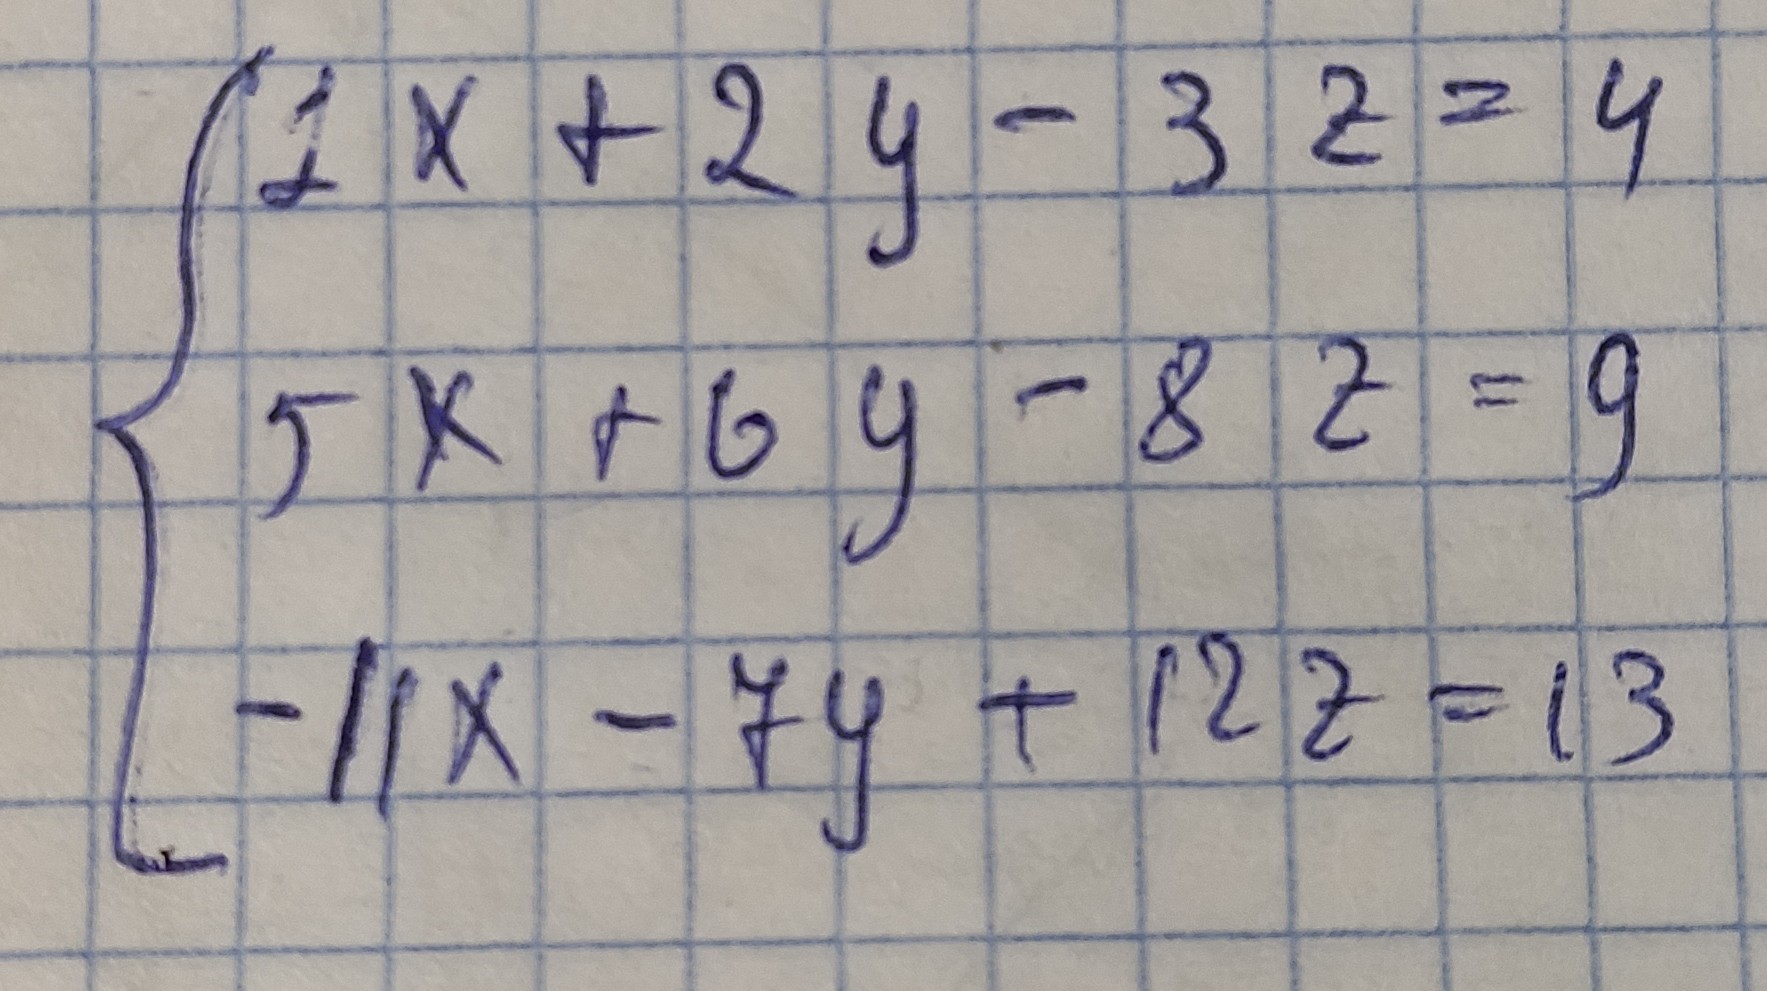 1x + 2y - 3z = 4
5x + 6y - 8z = 9
-11x - 7y + 12z = 13